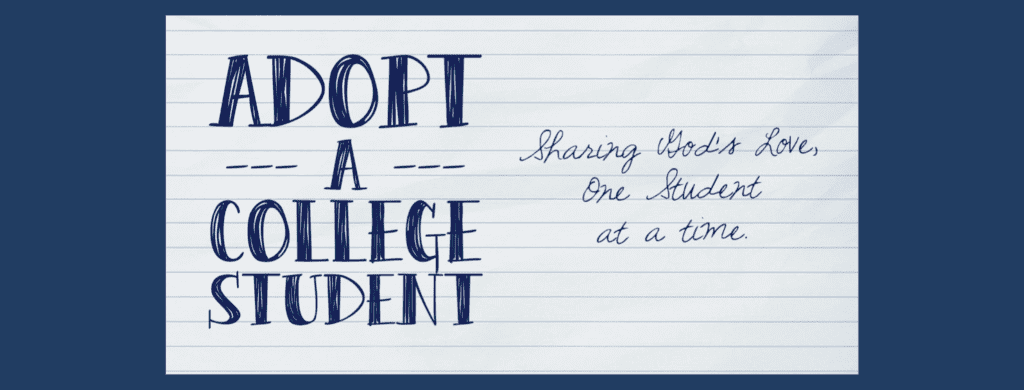 ADOPT
--- A ---
COLLEGE
STUDENT
Sharing God's Love,
One Student
at a time.